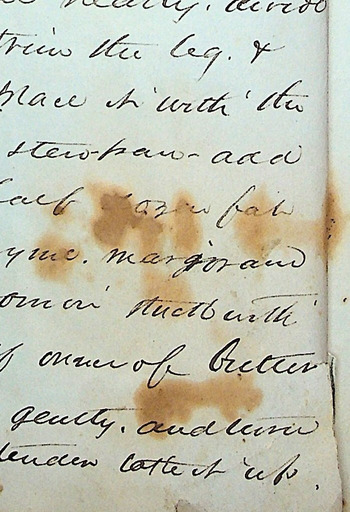 neatly. divide
trim the leg. &
place it with the
stew-pan - add
half
yme. marjoram
onion stuck with
ounce of butter
gently. and turn
tender take it up.